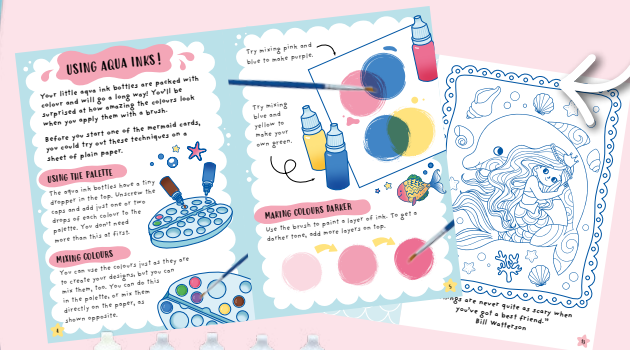 USING AQUA INKS!
Your little aqua ink bottles are packed with
colour and will go a long way! You'll be
surprised at how amazing the colours look
when you apply them with a brush.
Before you start one of the mermaid cards,
you could try out these techniques on a
sheet of plain paper.
USING THE PALETTE
The aqua ink bottles have a tiny
dropper in the top. Unscrew the
caps and add just one or two
drops of each colour to the
palette. You don't need
more than this at first.
MIXING COLOURS
You can use the colours just as they are
to create your designs, but you can
mix them, too. You can do this
in the palette, or mix them
directly on the paper, as
shown opposite.
4
Try mixing pink and
blue to make purple.
Try mixing
blue and
yellow to
make your
own green.
MAKING COLOURS DARKER
Use the brush to paint a layer of ink. To get a
darker tone, add more layers on top.
5
are never quite as scary when
you've got a best friend."
Bill Watterson